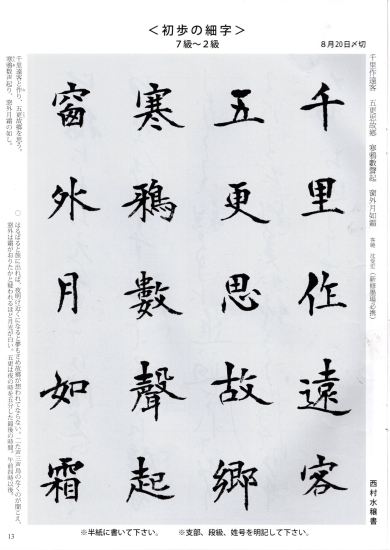 ＜初歩の細字＞
７級～２級
８月20日〆切
千里作遠客　五更思故郷　寒鴉數聲起　窗外月如霜
千里作遠客
五更思故郷
寒鴉數聲起
窗外月如霜
西村水穣書
千里遠客と作り、五更故郷を思う。
寒鴉数声起り、窓外月霜の如し。
○　はるばると旅に出れば、夜明け近くになると夢もさめ故郷が想われてならない。二た声三声烏のなくのが聞こえ、
窓外は霜がおりたかと疑われるほど月光が白い。五更は夜の時を五分した最後の時間。午前四時以後。
※半紙に書いて下さい。　※支部、段級、姓号を明記して下さい。
13